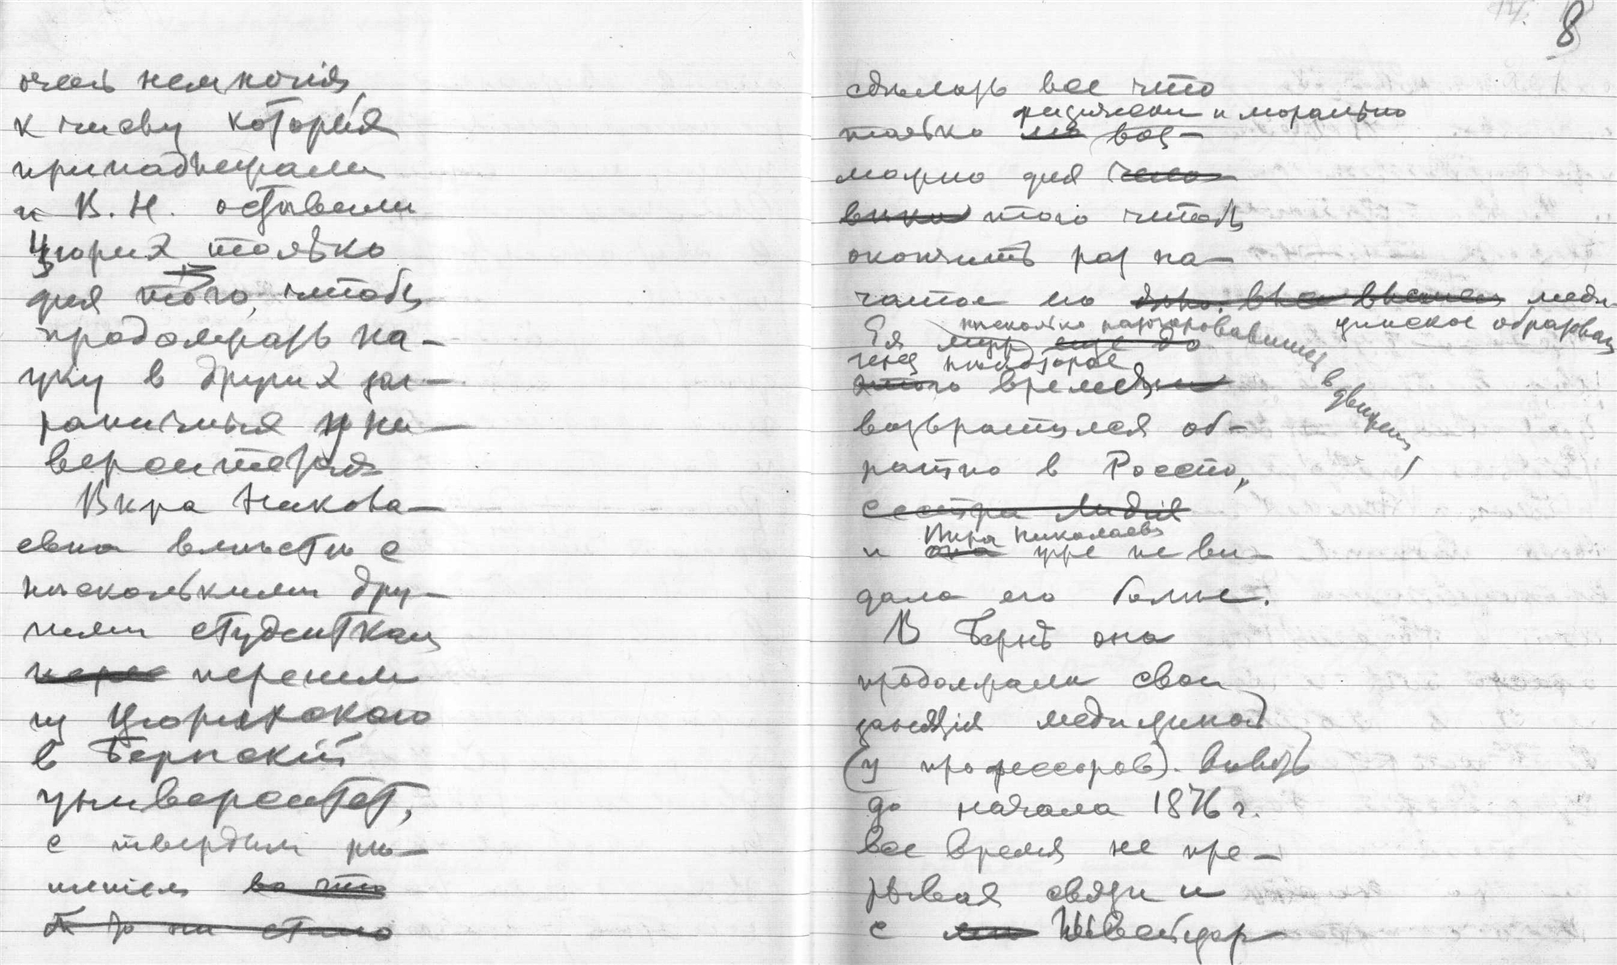 очень немногія,
к числу которыя
принадлежали
и В. Н. оставили
Цюрих только
для того, чтобы
продолжать на-
уку в других заг-
раничныя уни-
верситетах
Вера Никола-
евна вместе с
несколькими дру-
гими студентками
перешли
из Цюрихского
в Бернскій
университет,
с твердым ре-
шеніем
8
сделать все что
физически и морально
только воз-
можно для
того чтобы
окончить раз на-
чатое ею меди-
цинское образован
несколько разочаровавшись в движеніи,
через некоторое
время
возвратился об-
ратно в Россію,
Вера Николаевна
и уже не ви-
дала его более.
В Берне она
продолжала свои
занятія медициной
(у профессоров). вплоть
до начала 1876 г.
все время не пре-
рывая связи и
с Швейцар